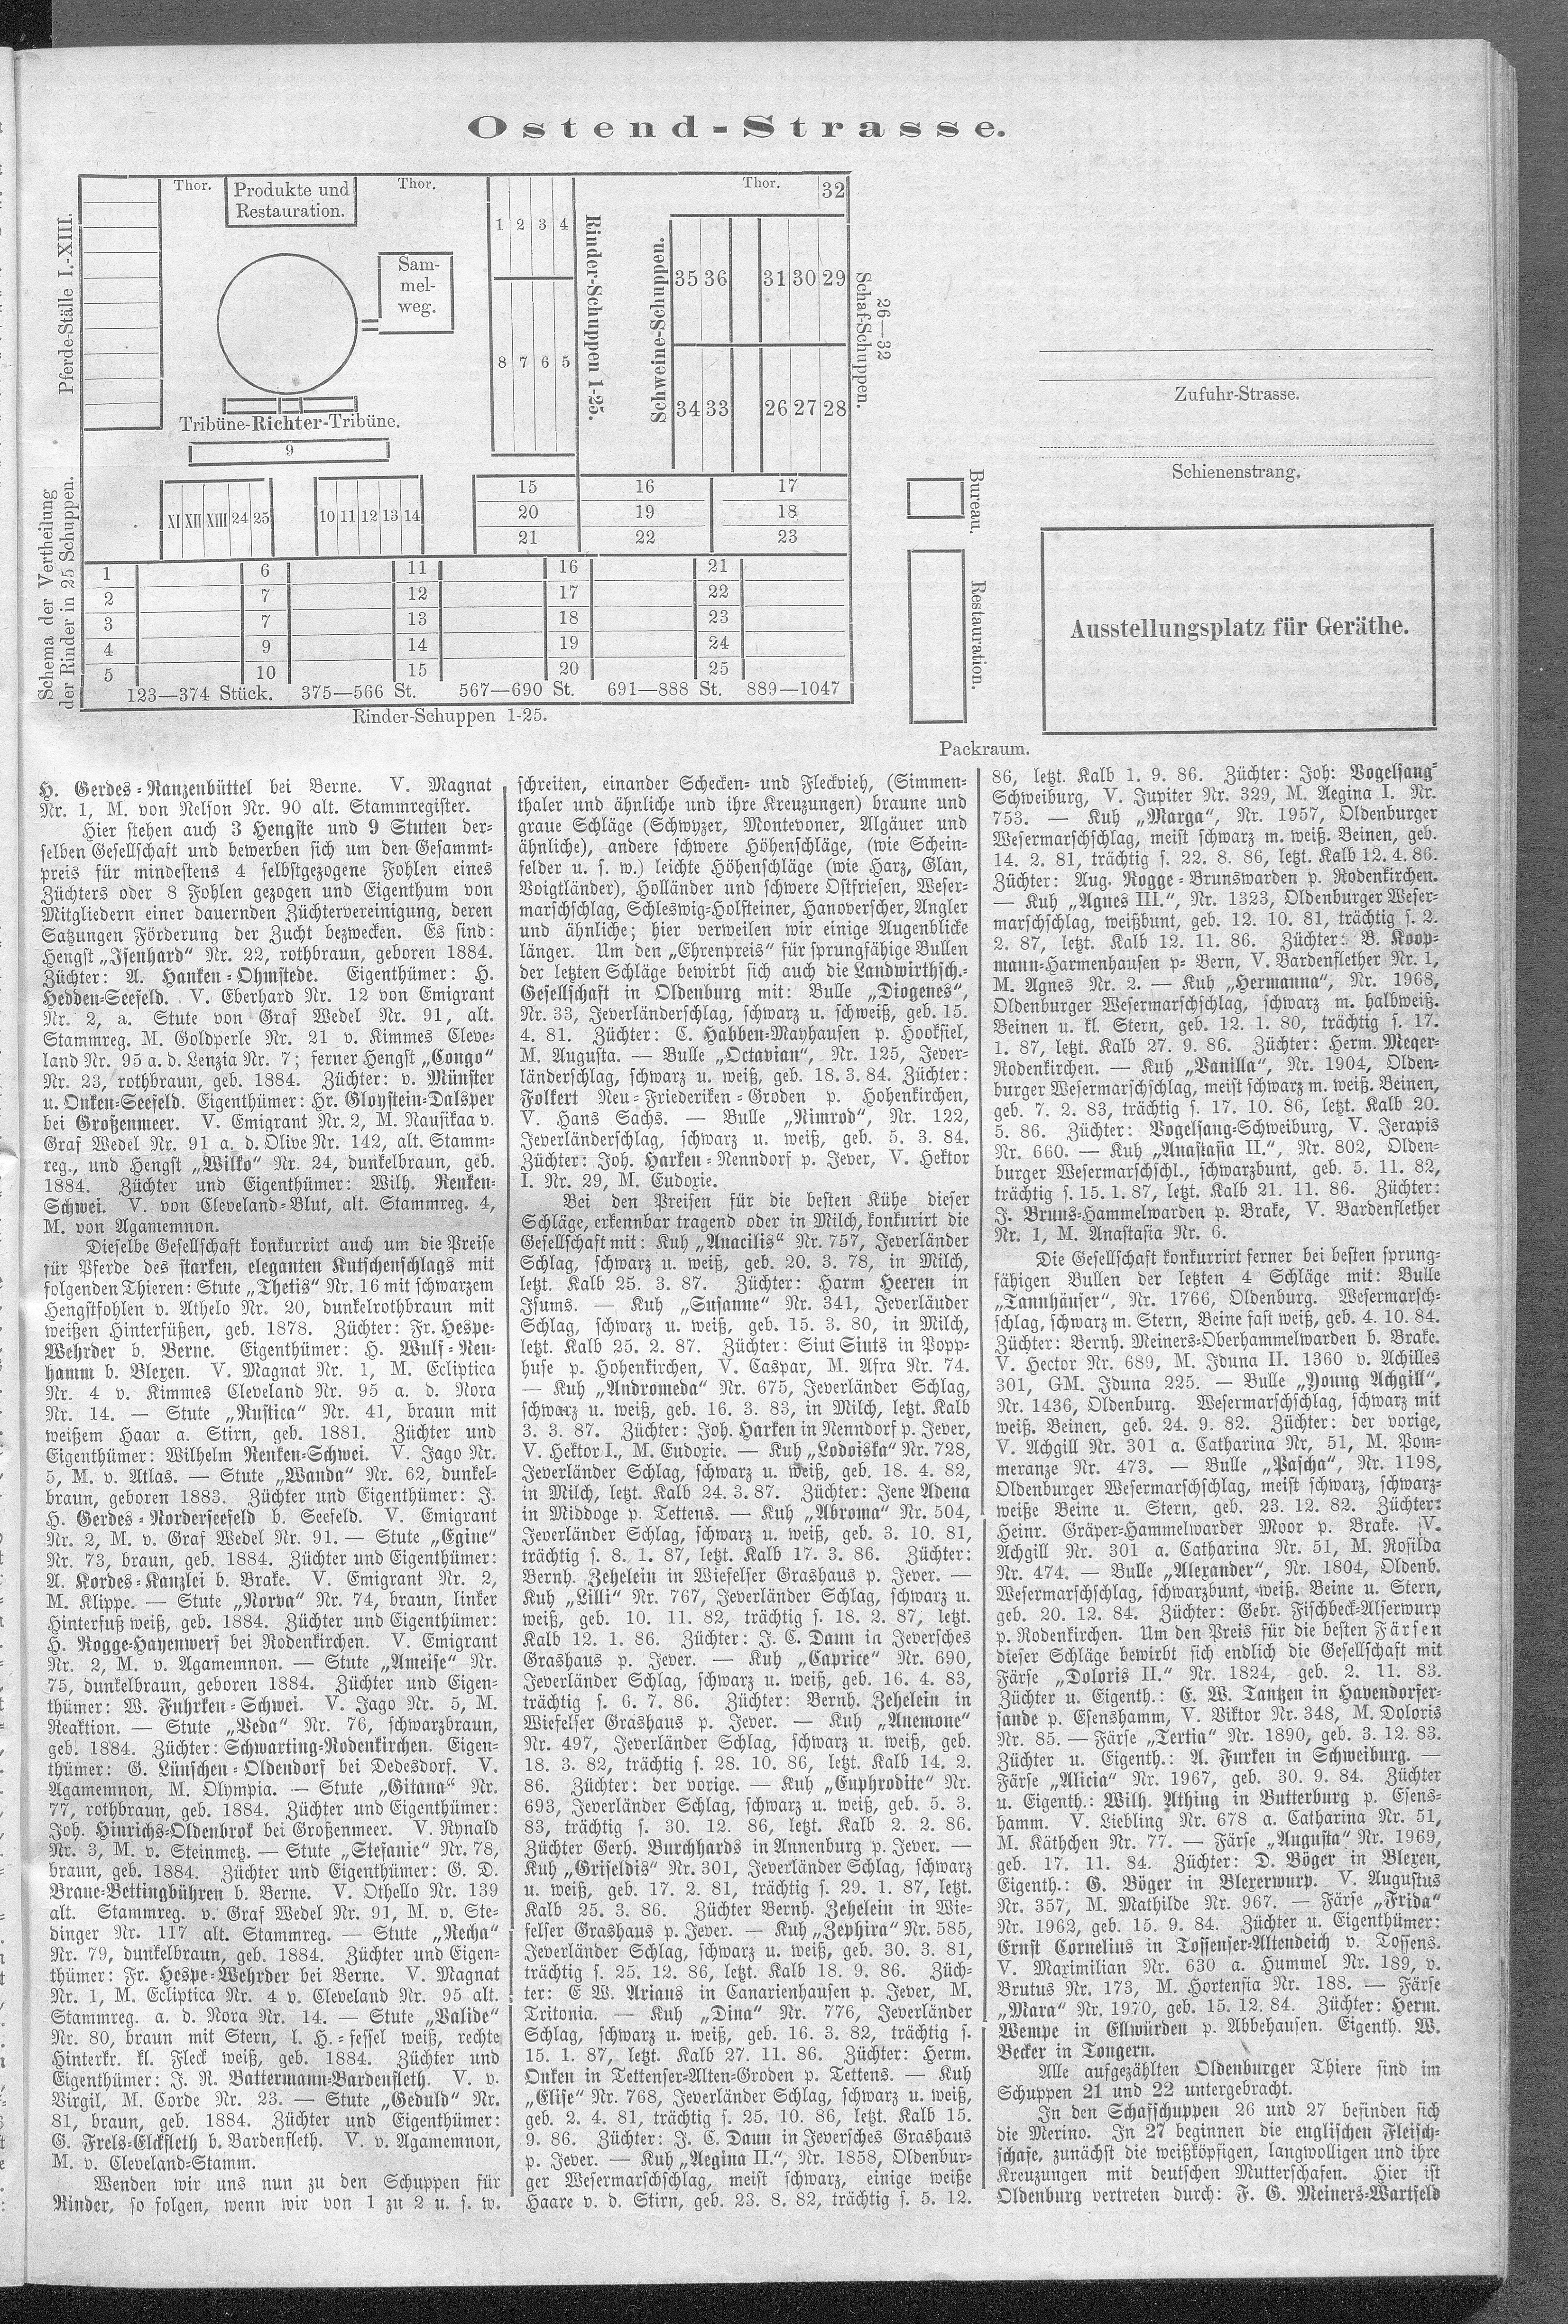 Ostend-Strasse.
Pferde-Ställe I.-XIII.
Thor.
Produkte und
Restauration.
Thor.
Sam-
mel-
weg.
Tribüne-Richter-Tribüne.
9
1 2 3 4
8 7 6 5
Rinder-Schuppen 1-25.
Schweine-Schuppen.
Thor.
32
35 36 31 30 29
34 33 26 27 28
26—32
Schaf-Schuppen.
XI XII XIII 24 25
10 11 12 13 14
15 16 17
20 19 18
21 22 23
Schema der Vertheilung
der Rinder in 25 Schuppen.
1 6 11 16 21
2 7 12 17 22
3 7 13 18 23
4 9 14 19 24
5 10 15 20 25
123—374 Stück. 375—566 St. 567—690 St. 691—888 St. 889—1047
Rinder-Schuppen 1-25.
Zufuhr-Strasse.
Schienenstrang.
Bureau.
Restauration.
Ausstellungsplatz für Geräthe.
Packraum.
H. Gerdes-Ranzenbüttel bei Berne. V. Magnat
Nr. 1, M. von Nelson Nr. 90 alt. Stammregister.
Hier stehen auch 3 Hengste und 9 Stuten der-
selben Gesellschaft und bewerben sich um den Gesammt-
preis für mindestens 4 selbstgezogene Fohlen eines
Züchters oder 8 Fohlen gezogen und Eigenthum von
Mitgliedern einer dauernden Züchtervereinigung, deren
Satzungen Förderung der Zucht bezwecken. Es sind:
Hengst „Isenhard" Nr. 22, rothbraun, geboren 1884.
Züchter: A. Hanken-Ohmstede. Eigenthümer: H.
Hedden-Seefeld. V. Eberhard Nr. 12 von Emigrant
Nr. 2, a. Stute von Graf Wedel Nr. 91, alt.
Stammreg. M. Goldperle Nr. 21 v. Kimmes Cleve-
land Nr. 95 a. d. Lenzia Nr. 7; ferner Hengst „Congo"
Nr. 23, rothbraun, geb. 1884. Züchter: v. Münster
u. Onken-Seefeld. Eigenthümer: Hr. Gloystein-Dalsper
bei Großenmeer. V. Emigrant Nr. 2, M. Nausikaa v.
Graf Wedel Nr. 91 a. d. Olive Nr. 142, alt. Stamm-
reg., und Hengst „Wilko" Nr. 24, dunkelbraun, geb.
1884. Züchter und Eigenthümer: Wilh. Renken-
Schwei. V. von Cleveland-Blut, alt. Stammreg. 4,
M. von Agamemnon.
Dieselbe Gesellschaft konkurrirt auch um die Preise
für Pferde des starken, eleganten Kutschenschlags mit
folgenden Thieren: Stute „Thetis" Nr. 16 mit schwarzem
Hengstfohlen v. Athelo Nr. 20, dunkelrothbraun mit
weißen Hinterfüßen, geb. 1878. Züchter: Fr. Hespe-
Wehrder b. Berne. Eigenthümer: H. Wulf-Neu-
hamm b. Blexen. V. Magnat Nr. 1, M. Ecliptica
Nr. 4 v. Kimmes Cleveland Nr. 95 a. d. Nora
Nr. 14. — Stute „Rustica" Nr. 41, braun mit
weißem Haar a. Stirn, geb. 1881. Züchter und
Eigenthümer: Wilhelm Renken-Schwei. V. Jago Nr.
5, M. v. Atlas. — Stute „Wanda" Nr. 62, dunkel-
braun, geboren 1883. Züchter und Eigenthümer: J.
H. Gerdes-Norderseefeld b. Seefeld. V. Emigrant
Nr. 2, M. v. Graf Wedel Nr. 91. — Stute „Egine"
Nr. 73, braun, geb. 1884. Züchter und Eigenthümer:
A. Kordes-Kanzlei b. Brake. V. Emigrant Nr. 2,
M. Klippe. — Stute „Norva" Nr. 74, braun, linker
Hinterfuß weiß, geb. 1884. Züchter und Eigenthümer:
H. Rogge-Hayenwerf bei Rodenkirchen. V. Emigrant
Nr. 2, M. v. Agamemnon. — Stute „Ameise" Nr.
75, dunkelbraun, geboren 1884. Züchter und Eigen-
thümer: W. Fuhrken-Schwei. V. Jago Nr. 5, M.
Reaktion. — Stute „Veda" Nr. 76, schwarzbraun,
geb. 1884. Züchter: Schwarting-Rodenkirchen. Eigen-
thümer: G. Lünschen-Oldendorf bei Dedesdorf. V.
Agamemnon, M. Olympia. — Stute „Gitana" Nr.
77, rothbraun, geb. 1884. Züchter und Eigenthümer:
Joh. Hinrichs-Oldenbrok bei Großenmeer. V. Rynald
Nr. 3, M. v. Steinmetz. — Stute „Stefanie" Nr. 78,
braun, geb. 1884. Züchter und Eigenthümer: G. D.
Braue-Bettingbühren b. Berne. V. Othello Nr. 139
alt. Stammreg. v. Graf Wedel Nr. 91, M. v. Ste-
dinger Nr. 117 alt. Stammreg. — Stute „Recha"
Nr. 79, dunkelbraun, geb. 1884. Züchter und Eigen-
thümer: Fr. Hespe-Wehrder bei Berne. V. Magnat
Nr. 1, M. Ecliptica Nr. 4 v. Cleveland Nr. 95 alt.
Stammreg. a. d. Nora Nr. 14. — Stute „Valide"
Nr. 80, braun mit Stern, l. H.-fessel weiß, rechte
Hinterkr. kl. Fleck weiß, geb. 1884. Züchter und
Eigenthümer: J. N. Battermann-Bardenfleth. V. v.
Virgil, M. Corde Nr. 23. — Stute „Geduld" Nr.
81, braun, geb. 1884. Züchter und Eigenthümer:
G. Frels-Elsfleth b. Bardenfleth. V. v. Agamemnon,
M. v. Cleveland-Stamm.
Wenden wir uns nun zu den Schuppen für
Rinder, so folgen, wenn wir von 1 zu 2 u. s. w.
schreiten, einander Schecken- und Fleckvieh, (Simmen-
thaler und ähnliche und ihre Kreuzungen) braune und
graue Schläge (Schwyzer, Montevoner, Algäuer und
ähnliche), andere schwere Höhenschläge, (wie Schein-
felder u. s. w.) leichte Höhenschläge (wie Harz, Glan,
Voigtländer), Holländer und schwere Ostfriesen, Weser-
marschschlag, Schleswig-Holsteiner, Hanoverscher, Angler
und ähnliche; hier verweilen wir einige Augenblicke
länger. Um den „Ehrenpreis" für sprungfähige Bullen
der letzten Schläge bewirbt sich auch die Landwirthsch.-
Gesellschaft in Oldenburg mit: Bulle „Diogenes",
Nr. 33, Jeverländerschlag, schwarz u. schweiß, geb. 15.
4. 81. Züchter: C. Habben-Mayhausen p. Hooksiel,
M. Augusta. — Bulle „Octavian", Nr. 125, Jever-
länderschlag, schwarz u. weiß, geb. 18. 3. 84. Züchter:
Folkert Neu-Friederiken-Groden p. Hohenkirchen,
V. Hans Sachs. — Bulle „Nimrod", Nr. 122,
Jeverländerschlag, schwarz u. weiß, geb. 5. 3. 84.
Züchter: Joh. Harken-Nenndorf p. Jever, V. Hektor
I. Nr. 29, M. Eudoxie.
Bei den Preisen für die besten Kühe dieser
Schläge, erkennbar tragend oder in Milch, konkurirt die
Gesellschaft mit: Kuh „Anacilis" Nr. 757, Jeverländer
Schlag, schwarz u. weiß, geb. 20. 3. 78, in Milch,
letzt. Kalb 25. 3. 87. Züchter: Harm Heeren in
Isums. — Kuh „Susanne" Nr. 341, Jeverländer
Schlag, schwarz u. weiß, geb. 15. 3. 80, in Milch,
letzt. Kalb 25. 2. 87. Züchter: Siut Siuts in Popp-
huse p. Hohenkirchen, V. Caspar, M. Afra Nr. 74.
— Kuh „Andromeda" Nr. 675, Jeverländer Schlag,
schwarz u. weiß, geb. 16. 3. 83, in Milch, letzt. Kalb
3. 3. 87. Züchter: Joh. Harken in Nenndorf p. Jever,
V. Hektor I., M. Eudoxie. — Kuh „Lodoiska" Nr. 728,
Jeverländer Schlag, schwarz u. weiß, geb. 18. 4. 82,
in Milch, letzt. Kalb 24. 3. 87. Züchter: Jene Adena
in Middoge p. Tettens. — Kuh „Abroma" Nr. 504,
Jeverländer Schlag, schwarz u. weiß, geb. 3. 10. 81,
trächtig s. 8. 1. 87, letzt. Kalb 17. 3. 86. Züchter:
Bernh. Zehelein in Wiefelser Grashaus p. Jever. —
Kuh „Lilli" Nr. 767, Jeverländer Schlag, schwarz u.
weiß, geb. 10. 11. 82, trächtig s. 18. 2. 87, letzt.
Kalb 12. 1. 86. Züchter: J. C. Daun in Jeversches
Grashaus p. Jever. — Kuh „Caprice" Nr. 690,
Jeverländer Schlag, schwarz u. weiß, geb. 16. 4. 83,
trächtig s. 6. 7. 86. Züchter: Bernh. Zehelein in
Wiefelser Grashaus p. Jever. — Kuh „Anemone"
Nr. 497, Jeverländer Schlag, schwarz u. weiß, geb.
18. 3. 82, trächtig s. 28. 10. 86, letzt. Kalb 14. 2.
86. Züchter: der vorige. — Kuh „Euphrodite" Nr.
693, Jeverländer Schlag, schwarz u. weiß, geb. 5. 3.
83, trächtig s. 30. 12. 86, letzt. Kalb 2. 2. 86.
Züchter Gerh. Burchhards in Annenburg p. Jever. —
Kuh „Griseldis" Nr. 301, Jeverländer Schlag, schwarz
u. weiß, geb. 17. 2. 81, trächtig s. 29. 1. 87, letzt.
Kalb 25. 3. 86. Züchter Bernh. Zehelein in Wie-
felser Grashaus p. Jever. — Kuh „Zephira" Nr. 585,
Jeverländer Schlag, schwarz u. weiß, geb. 30. 3. 81,
trächtig s. 25. 12. 86, letzt. Kalb 18. 9. 86. Züch-
ter: E W. Arians in Canarienhausen p. Jever, M.
Tritonia. — Kuh „Dina" Nr. 776, Jeverländer
Schlag, schwarz u. weiß, geb. 16. 3. 82, trächtig s.
15. 1. 87, letzt. Kalb 27. 11. 86. Züchter: Herm.
Onken in Tettenser-Alten-Groden p. Tettens. — Kuh
„Elise" Nr. 768, Jeverländer Schlag, schwarz u. weiß,
geb. 2. 4. 81, trächtig s. 25. 10. 86, letzt. Kalb 15.
9. 86. Züchter: J. C. Daun in Jeversches Grashaus
p. Jever. — Kuh „Aegina II.", Nr. 1858, Oldenbur-
ger Wesermarschschlag, meist schwarz, einige weiße
Haare v. d. Stirn, geb. 23. 8. 82, trächtig s. 5. 12.
86, letzt. Kalb 1. 9. 86. Züchter: Joh: Vogelsang-
Schweiburg, V. Jupiter Nr. 329, M. Aegina I. Nr.
753. — Kuh „Marga", Nr. 1957, Oldenburger
Wesermarschschlag, meist schwarz m. weiß. Beinen, geb.
14. 2. 81, trächtig s. 22. 8. 86, letzt. Kalb 12. 4. 86.
Züchter: Aug. Rogge-Brunswarden p. Rodenkirchen.
— Kuh „Agnes III.", Nr. 1323, Oldenburger Weser-
marschschlag, weißbunt, geb. 12. 10. 81, trächtig s. 2.
2. 87, letzt. Kalb 12. 11. 86. Züchter: B. Koop-
mann-Harmenhausen p- Bern, V. Bardenflether Nr. 1,
M. Agnes Nr. 2. — Kuh „Hermanna", Nr. 1968,
Oldenburger Wesermarschschlag, schwarz m. halbweiß.
Beinen u. kl. Stern, geb. 12. 1. 80, trächtig s. 17.
1. 87, letzt. Kalb 27. 9. 86. Züchter: Herm. Meger-
Rodenkirchen. — Kuh „Vanilla", Nr. 1904, Olden-
burger Wesermarschschlag, meist schwarz m. weiß. Beinen,
geb. 7. 2. 83, trächtig s. 17. 10. 86, letzt. Kalb 20.
5. 86. Züchter: Vogelsang-Schweiburg, V. Jerapis
Nr. 660. — Kuh „Anastasia II.", Nr. 802, Olden-
burger Wesermarschschl., schwarzbunt, geb. 5. 11. 82,
trächtig s. 15. 1. 87, letzt. Kalb 21. 11. 86. Züchter:
J. Bruns-Hammelwarden p. Brake, V. Bardenflether
Nr. 1, M. Anastasia Nr. 6.
Die Gesellschaft konkurrirt ferner bei besten sprung-
fähigen Bullen der letzten 4 Schläge mit: Bulle
„Tannhäuser", Nr. 1766, Oldenburg. Wesermarsch-
schlag, schwarz m. Stern, Beine fast weiß, geb. 4. 10. 84.
Züchter: Bernh. Meiners-Oberhammelwarden b. Brake.
V. Hector Nr. 689, M. Iduna II. 1360 v. Achilles
301, GM. Iduna 225. — Bulle „Young Achgill",
Nr. 1436, Oldenburg. Wesermarschschlag, schwarz mit
weiß. Beinen, geb. 24. 9. 82. Züchter: der vorige,
V. Achgill Nr. 301 a. Catharina Nr, 51, M. Pom-
meranze Nr. 473. — Bulle „Pascha", Nr. 1198,
Oldenburger Wesermarschschlag, meist schwarz, schwarz-
weiße Beine u. Stern, geb. 23. 12. 82. Züchter:
Heinr. Gräper-Hammelwarder Moor p. Brake. V.
Achgill Nr. 301 a. Catharina Nr. 51, M. Rosilda
Nr. 474. — Bulle „Alexander", Nr. 1804, Oldenb.
Wesermarschschlag, schwarzbunt, weiß. Beine u. Stern,
geb. 20. 12. 84. Züchter: Gebr. Fischbeck-Alserwurp
p. Rodenkirchen. Um den Preis für die besten Färsen
dieser Schläge bewirbt sich endlich die Gesellschaft mit
Färse „Doloris II." Nr. 1824, geb. 2. 11. 83.
Züchter u. Eigenth.: E. W. Tantzen in Havendorfer-
sande p. Esenshamm, V. Viktor Nr. 348, M. Doloris
Nr. 85. — Färse „Tertia" Nr. 1890, geb. 3. 12. 83.
Züchter u. Eigenth.: A. Furken in Schweiburg. —
Färse „Alicia" Nr. 1967, geb. 30. 9. 84. Züchter
u. Eigenth.: Wilh. Athing in Butterburg p. Esens-
hamm. V. Liebling Nr. 678 a. Catharina Nr. 51,
M. Käthchen Nr. 77. — Färse „Augusta" Nr. 1969,
geb. 17. 11. 84. Züchter: D. Böger in Blexen,
Eigenth.: G. Böger in Blexerwurp. V. Augustus
Nr. 357, M. Mathilde Nr. 967. — Färse „Frida"
Nr. 1962, geb. 15. 9. 84. Züchter u. Eigenthümer:
Ernst Cornelius in Tossenser-Altendeich v. Tossens.
V. Maximilian Nr. 630 a. Hummel Nr. 189, v.
Brutus Nr. 173, M. Hortensia Nr. 188. — Färse
„Mara" Nr. 1970, geb. 15. 12. 84. Züchter: Herm.
Wempe in Ellwürden p. Abbehausen. Eigenth. W.
Becker in Tongern.
Alle aufgezählten Oldenburger Thiere sind im
Schuppen 21 und 22 untergebracht.
In den Schafschuppen 26 und 27 befinden sich
die Merino. In 27 beginnen die englischen Fleisch-
schafe, zunächst die weißköpfigen, langwolligen und ihre
Kreuzungen mit deutschen Mutterschafen. Hier ist
Oldenburg vertreten durch: F. G. Meiners-Wartfeld